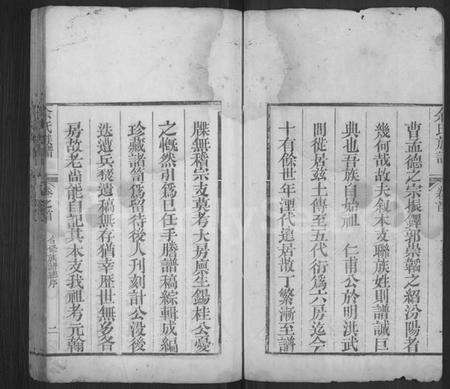 曹孟德之宗振鐸郭崇韜之紹汾陽者
幾何哉故夫敘本支聯族姓則譜誠巨
典也吾族自始祖 仁甫公於明洪武
間從居茲土傳至五代衍為六房迄今
十有餘世年湮代遠居散丁繁漸至譜
牒無稽宗支莫考大房廩生錫桂公憂
之慨然引為己任手謄譜稿綜輯成編
珍藏諸笥為留待後人刊刻計公沒後
迭遭兵燹遺稿無存猶幸歷世無多各
房故老尚能自記其本支我祖考元翰
族譜
卷首
卷之首
族譜序
二